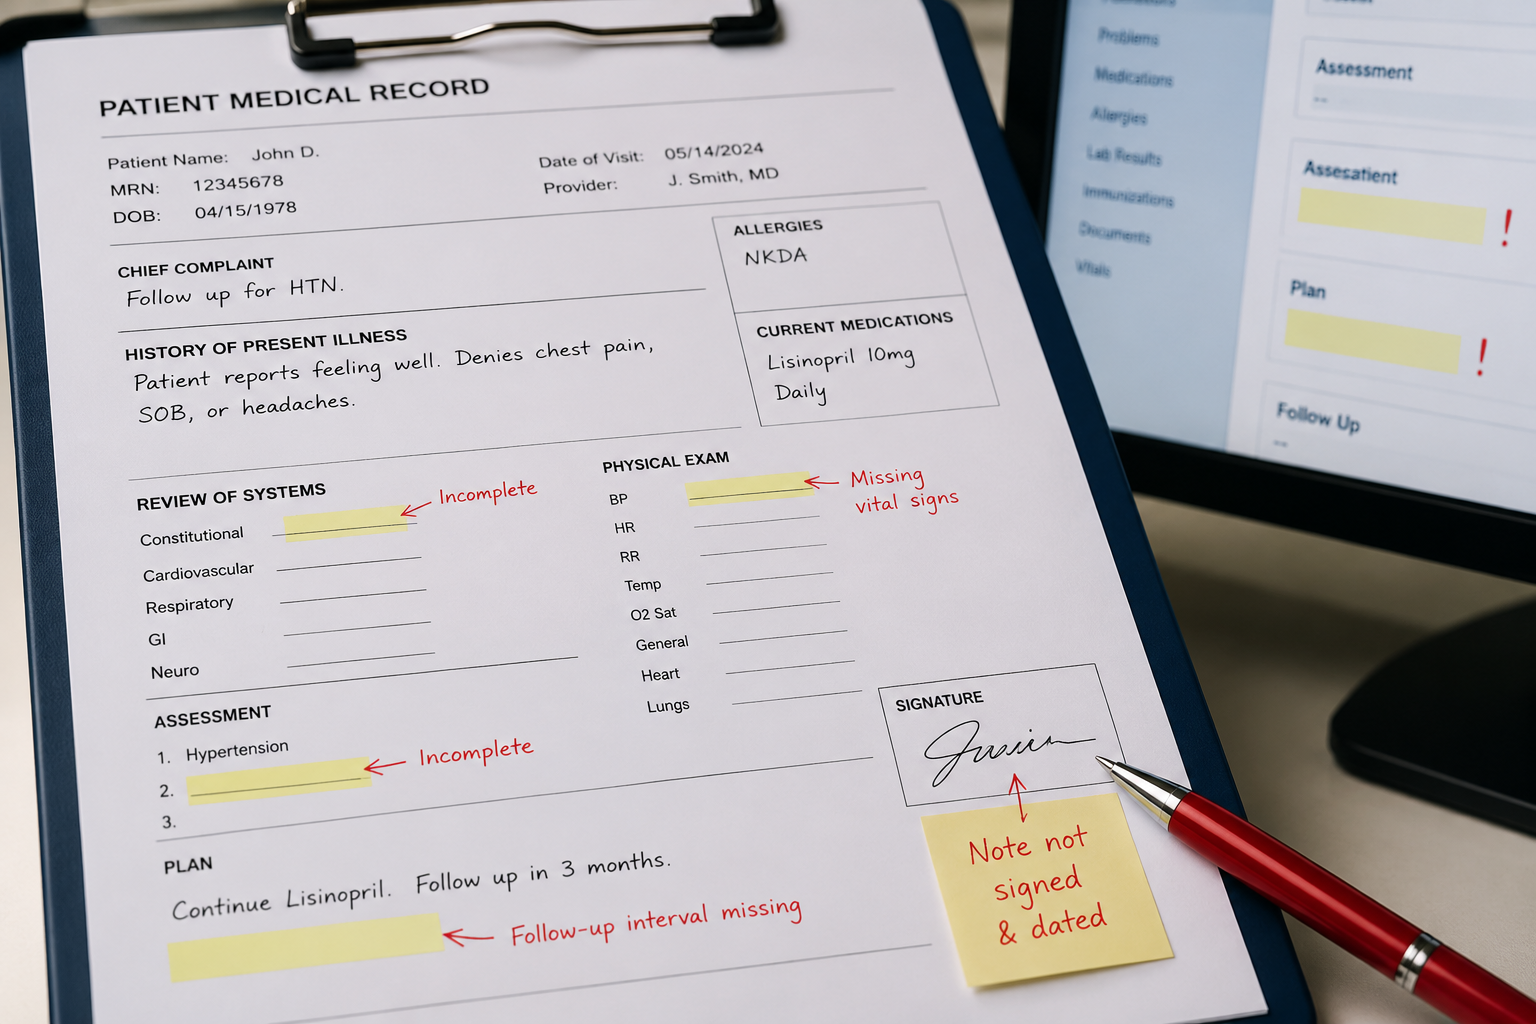 PATIENT MEDICAL RECORD
Patient Name: John D.
MRN: 12345678
DOB: 04/15/1978
Date of Visit: 05/14/2024
Provider: J. Smith, MD
CHIEF COMPLAINT
Follow up for HTN.
HISTORY OF PRESENT ILLNESS
Patient reports feeling well. Denies chest pain,
SOB, or headaches.
ALLERGIES
NKDA
CURRENT MEDICATIONS
Lisinopril 10mg
Daily
REVIEW OF SYSTEMS
Incomplete
Constitutional
Cardiovascular
Respiratory
GI
Neuro
PHYSICAL EXAM
BP
Missing
vital signs
HR
RR
Temp
O2 Sat
General
Heart
Lungs
ASSESSMENT
1. Hypertension
2.
Incomplete
3.
PLAN
Continue Lisinopril. Follow up in 3 months.
Follow-up interval missing
SIGNATURE
Note not
signed
& dated
Problems
Medications
Allergies
Lab Results
Immunizations
Documents
Vitals
Assessment
--
Assesatient
!
Plan
!
Follow Up
--